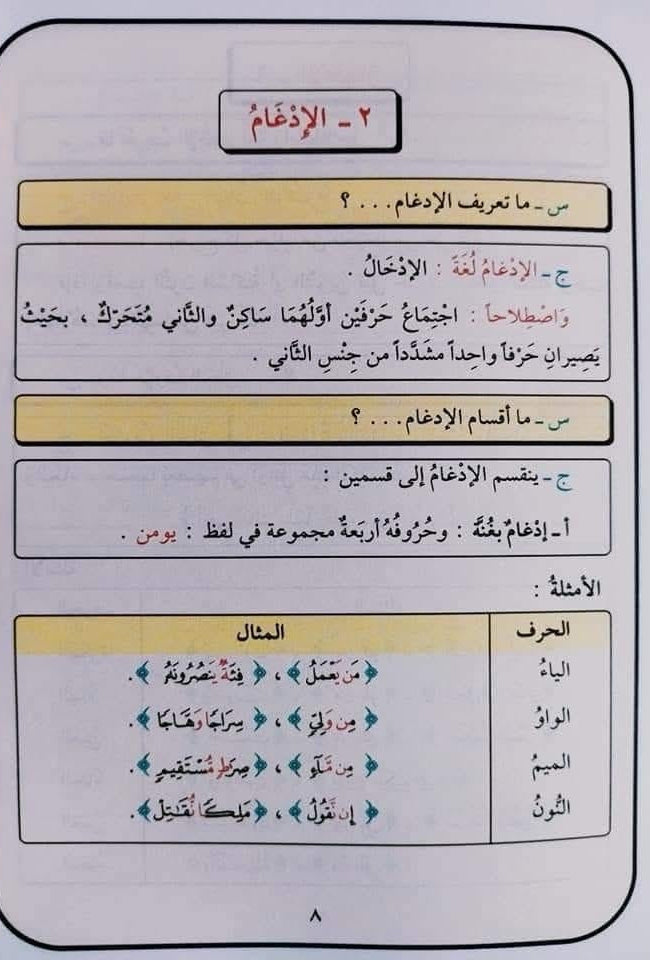 ٢ ـ الإِدْغَامُ
س ـ ما تعريف الإدغام . . . ؟
ج ـ الإِدْغَامُ لُغَةً : الإِدْخَالُ .
وَاصْطِلاحاً : اجْتِمَاعُ حَرْفَيْن أوَّلُهُمَا سَاكِنٌ والثَّاني مُتَحَرّكٌ ، بحَيْثُ
يَصِيرانِ حَرْفاً واحِداً مشَدَّداً من جِنْسِ الثَّاني .
س ـ ما أقسام الإدغام . . . ؟
ج ـ ينقسم الإدْغامُ إلى قسمين :
أ ـ إدْغامٌ بغُنَّة : وحُرُوفُهُ أربَعةٌ مجموعة في لفظ : يومن .
الأمثلةُ :
الحرف المثال
الياءُ ﴿ مَن يَعْمَلُ ﴾ ، ﴿ فِئَةٌ يَنصُرُونَهُۥ ﴾ .
الواوُ ﴿ مِن وَلِيٍّ ﴾ ، ﴿ سِرَاجًا وَهَّاجًا ﴾ .
الميمُ ﴿ مِن مَّآءٍ ﴾ ، ﴿ صِرَٰطٍ مُّسْتَقِيمٍ ﴾ .
النُّونُ ﴿ إِن نَّقُولُ ﴾ ، ﴿ مَلِكًا نُّقَٰتِلْ ﴾ .
٨